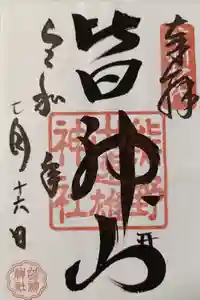 奉拝
皆神山
熊野
出速雄
神社
令和
年
七月十六日
皆神
神社